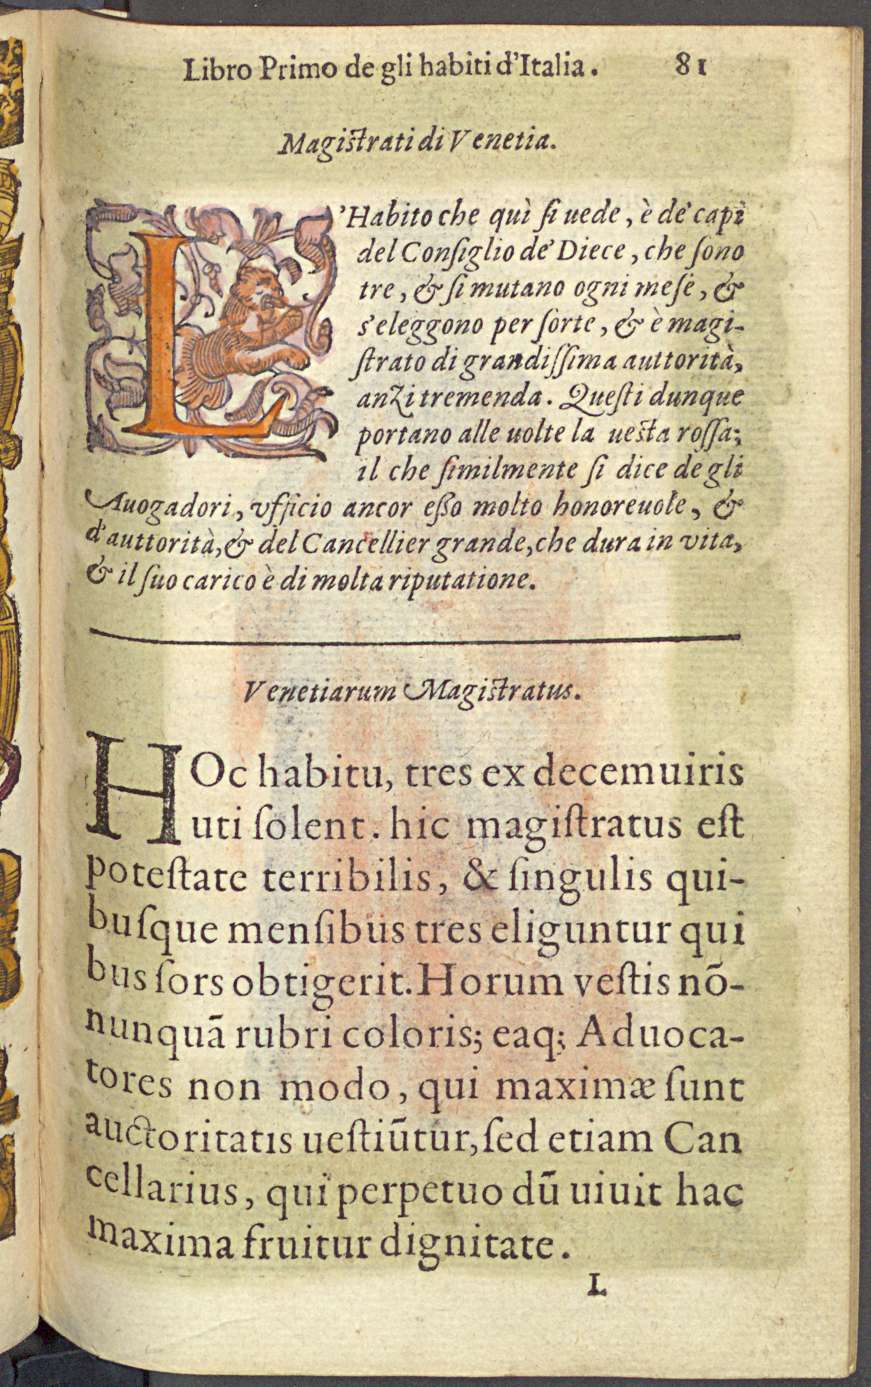 Libro Primo de gli habiti d'Italia. 81
Magistrati di Venetia.
L'Habito che quì si uede, è de' capi
del Consiglio de' Diece, che sono
tre, & si mutano ogni mese, &
s'eleggono per sorte, & è magi-
strato di grandissima auttorità,
anzi tremenda. Questi dunque
portano alle uolte la uesta rossa;
il che similmente si dice de gli
Auogadori, vfficio ancor esso molto honoreuole, &
d'auttorità, & del Cancellier grande, che dura in vita,
& il suo carico è di molta riputatione.
Venetiarum Magistratus.
HOc habitu, tres ex decemuiris
uti solent. hic magistratus est
potestate terribilis, & singulis qui-
busque mensibus tres eliguntur qui
bus sors obtigerit. Horum vestis nō-
nunquā rubri coloris; eaq; Aduoca-
tores non modo, qui maximæ sunt
auctoritatis uestiūtur, sed etiam Can
cellarius, qui perpetuo dū uiuit hac
maxima fruitur dignitate.
L